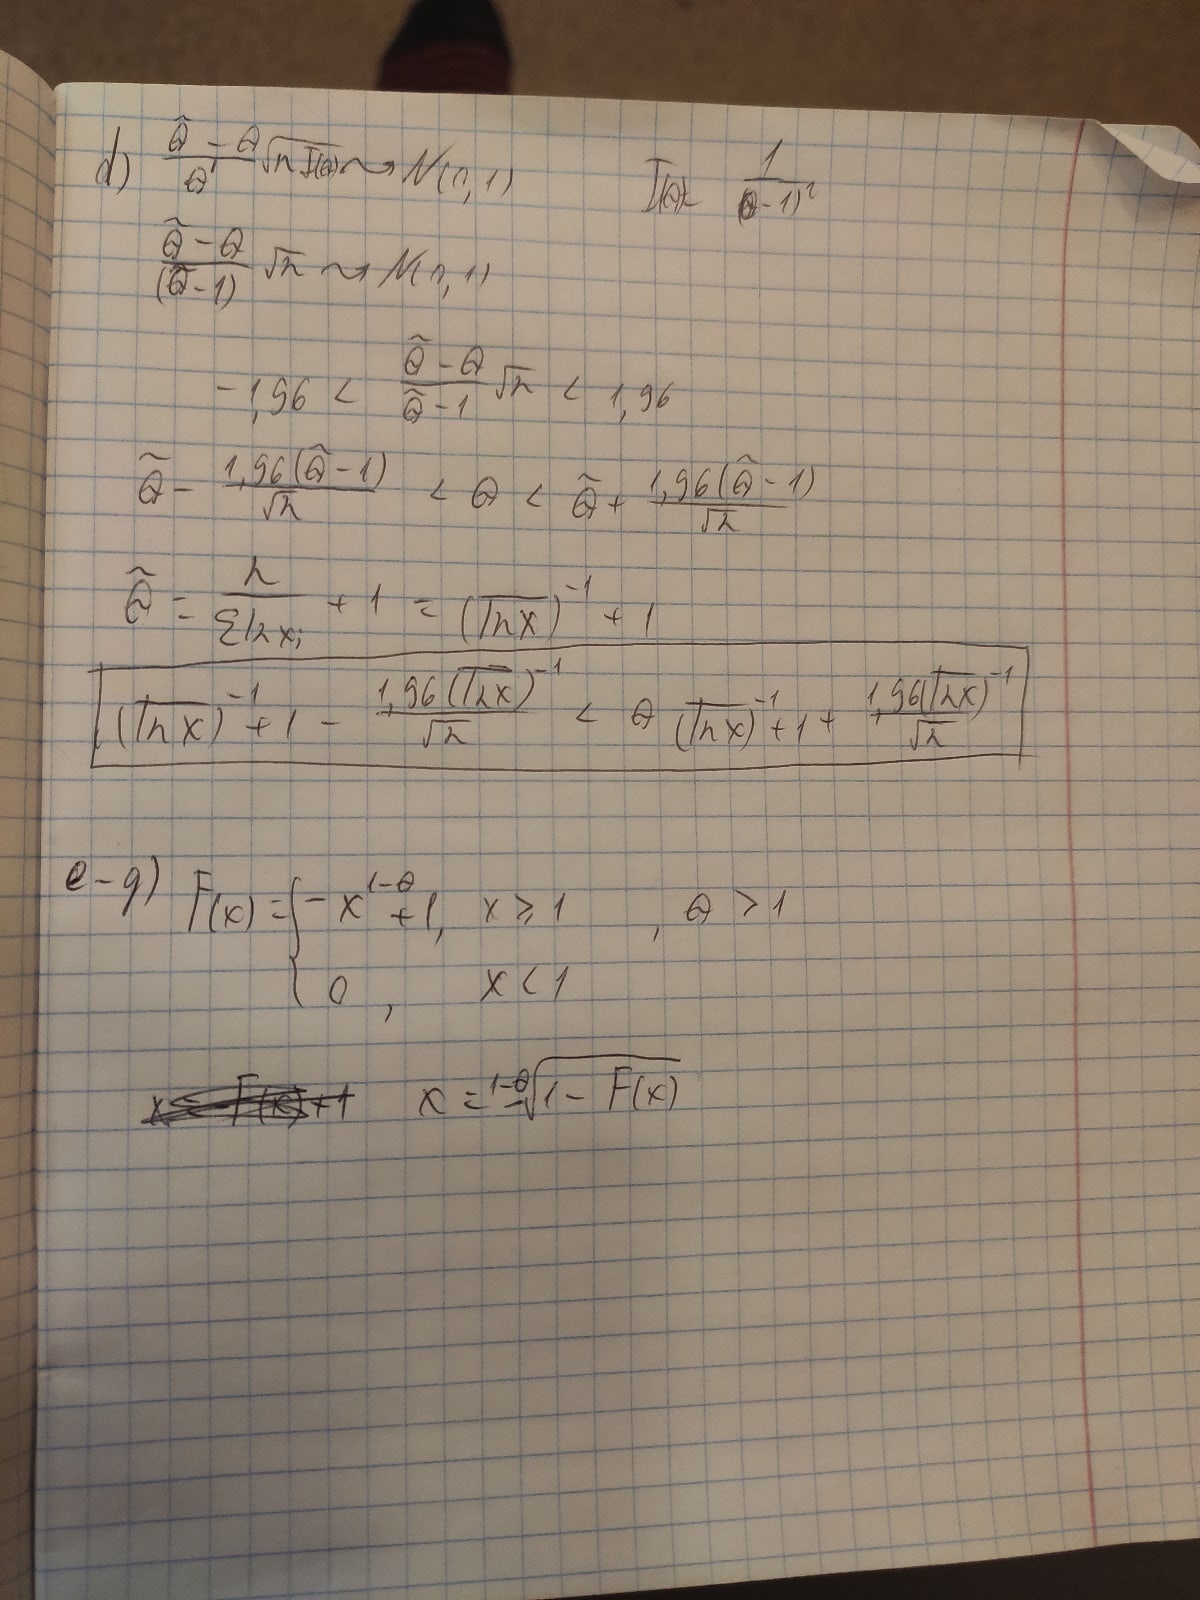 d) (θ̃ - θ)/θ √(n I(θ)) ⇝ N(0, 1)   I(θ) = 1/(θ-1)²
(θ̃ - θ)/(θ̃ - 1) √n ⇝ N(0, 1)
-1,96 < (θ̃ - θ)/(θ̃ - 1) √n < 1,96
θ̃ - 1,96(θ̃ - 1)/√n < θ < θ̃ + 1,96(θ̃ - 1)/√n
θ̃ = n/(Σ ln xᵢ) + 1 = (\overline{ln x})⁻¹ + 1
(\overline{ln x})⁻¹ + 1 - 1,96(\overline{ln x})⁻¹/√n < θ (\overline{ln x})⁻¹ + 1 + 1,96(\overline{ln x})⁻¹/√n
e-g) F(x) = { -x^{1-θ} + 1, x ≥ 1 , θ > 1
0 , x < 1
x = \sqrt[1-θ]{1 - F(x)}